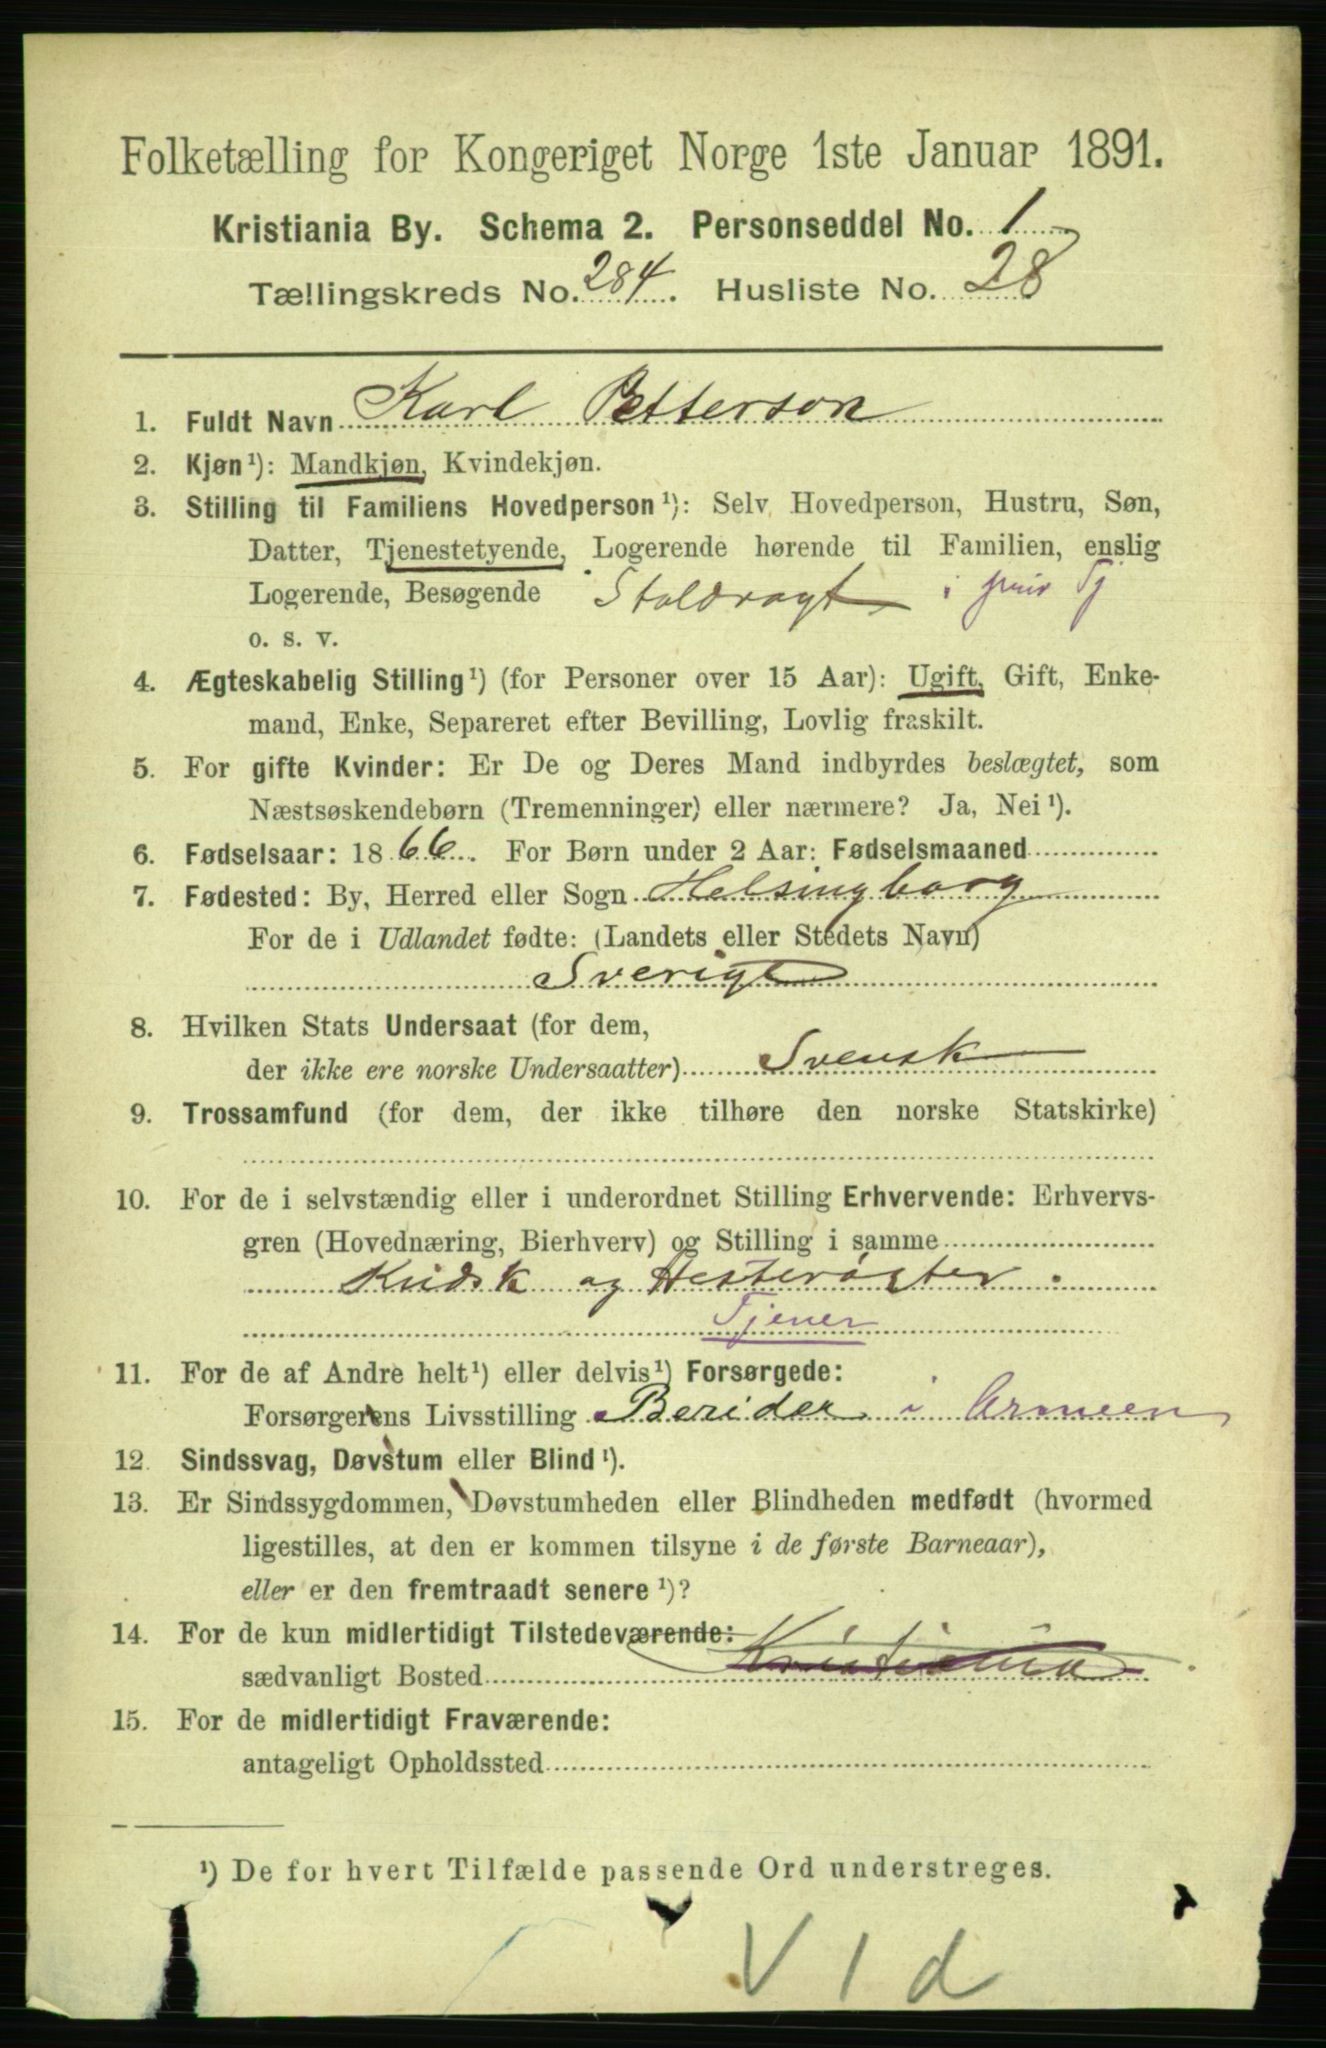 Folketælling for Kongeriget Norge 1ste Januar 1891.
Kristiania By. Schema 2. Personseddel No. 1
Tællingskreds No. 284. Husliste No. 28
1. Fuldt Navn Karl Petterson
2. Kjøn¹): Mandkjøn, Kvindekjøn.
3. Stilling til Familiens Hovedperson¹): Selv Hovedperson, Hustru, Søn,
Datter, Tjenestetyende, Logerende hørende til Familien, enslig
Logerende, Besøgende Staldvagt i priv Tj
o. s. v.
4. Ægteskabelig Stilling¹) (for Personer over 15 Aar): Ugift, Gift, Enke-
mand, Enke, Separeret efter Bevilling, Lovlig fraskilt.
5. For gifte Kvinder: Er De og Deres Mand indbyrdes beslægtet, som
Næstsøskendebørn (Tremenninger) eller nærmere? Ja, Nei¹).
6. Fødselsaar: 1866. For Børn under 2 Aar: Fødselsmaaned
7. Fødested: By, Herred eller Sogn Helsingborg
For de i Udlandet fødte: (Landets eller Stedets Navn)
Sverige
8. Hvilken Stats Undersaat (for dem,
der ikke ere norske Undersaatter) Svensk
9. Trossamfund (for dem, der ikke tilhøre den norske Statskirke)
10. For de i selvstændig eller i underordnet Stilling Erhvervende: Erhvervs-
gren (Hovednæring, Bierhverv) og Stilling i samme
Kudsk og Hesterøgter.
Tjener
11. For de af Andre helt¹) eller delvis¹) Forsørgede:
Forsørgerens Livsstilling Berider i Armeen
12. Sindssvag, Døvstum eller Blind¹).
13. Er Sindssygdommen, Døvstumheden eller Blindheden medfødt (hvormed
ligestilles, at den er kommen tilsyne i de første Barneaar),
eller er den fremtraadt senere¹)?
14. For de kun midlertidigt Tilstedeværende:
sædvanligt Bosted Kristiania
15. For de midlertidigt Fraværende:
antageligt Opholdssted
¹) De for hvert Tilfælde passende Ord understreges.
V 1 d